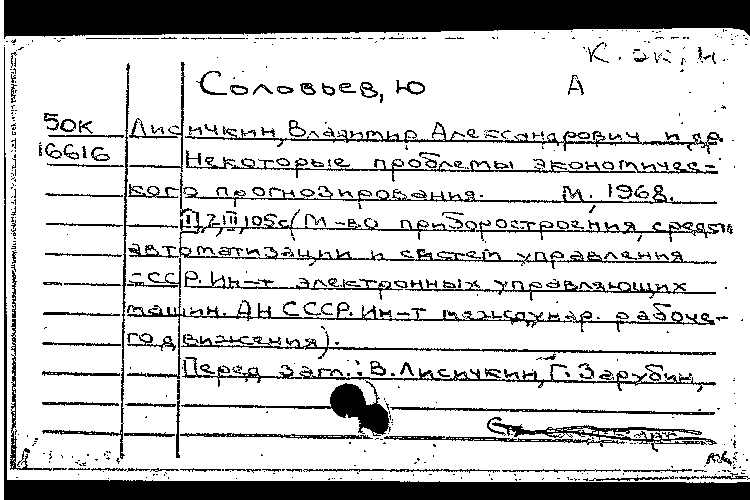 К. эк. н.
Соловьев, Ю А
50К Лисичкин, Владимир Александрович и др
16616 Некоторые проблемы экономичес-
кого прогнозирования. М., 1968.
II, 2, III, 105с (М-во приборостроения, средств
автоматизации и систем управления
СССР. Ин-т электронных управляющих
машин. АН СССР. Ин-т междунар. рабоче-
го движения).
Перед загл.: В. Лисичкин, Г. Зарубин,